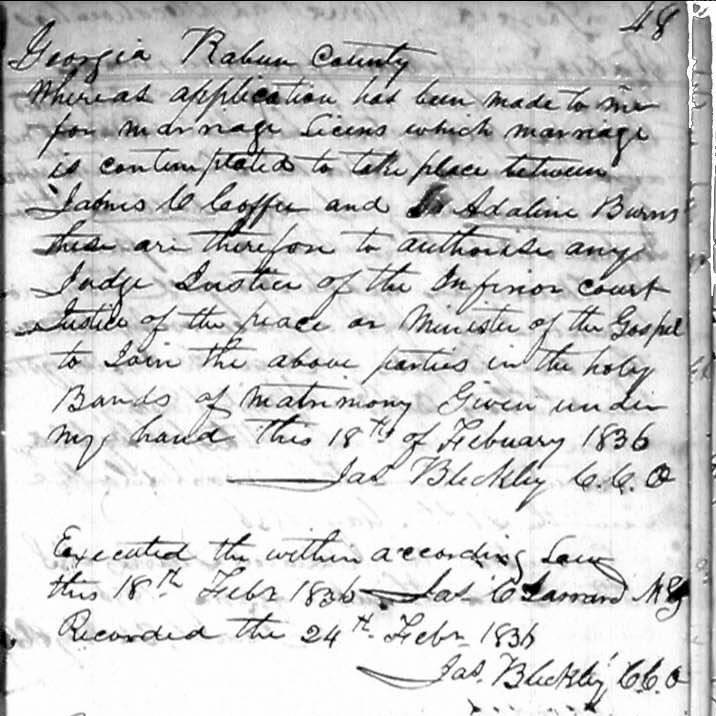 48
Georgia Rabun County
Whereas application has been made to me
for marriage Licens which marriage
is contemplated to take place between
James C Coffee and Adaline Burns
these are therefore to authorise any
Judge Justice of the Inferior court
Justice of the peace or Minister of the Gospel
to Join the above parties in the holy
Bands of Matrimony Given under
my hand this 18th of Febuary 1836
Jas Bleckley C.C.O
Executed the within according Law
this 18th Febr 1836 Jas C
Recorded the 24th Febr 1836
Jas. Bleckley C.C.O